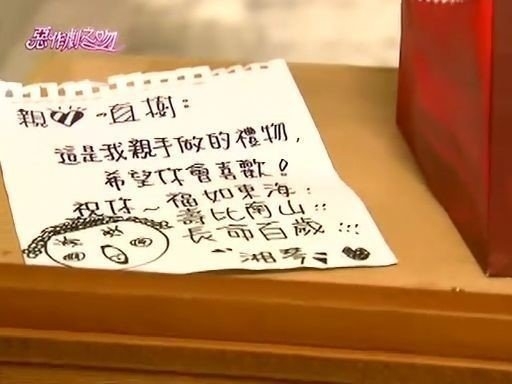 惡作劇之吻
親♥~直樹:
這是我親手做的禮物,
希望你會喜歡!
祝你~福如東海:
壽比南山::
長命百歲:::
湘琴